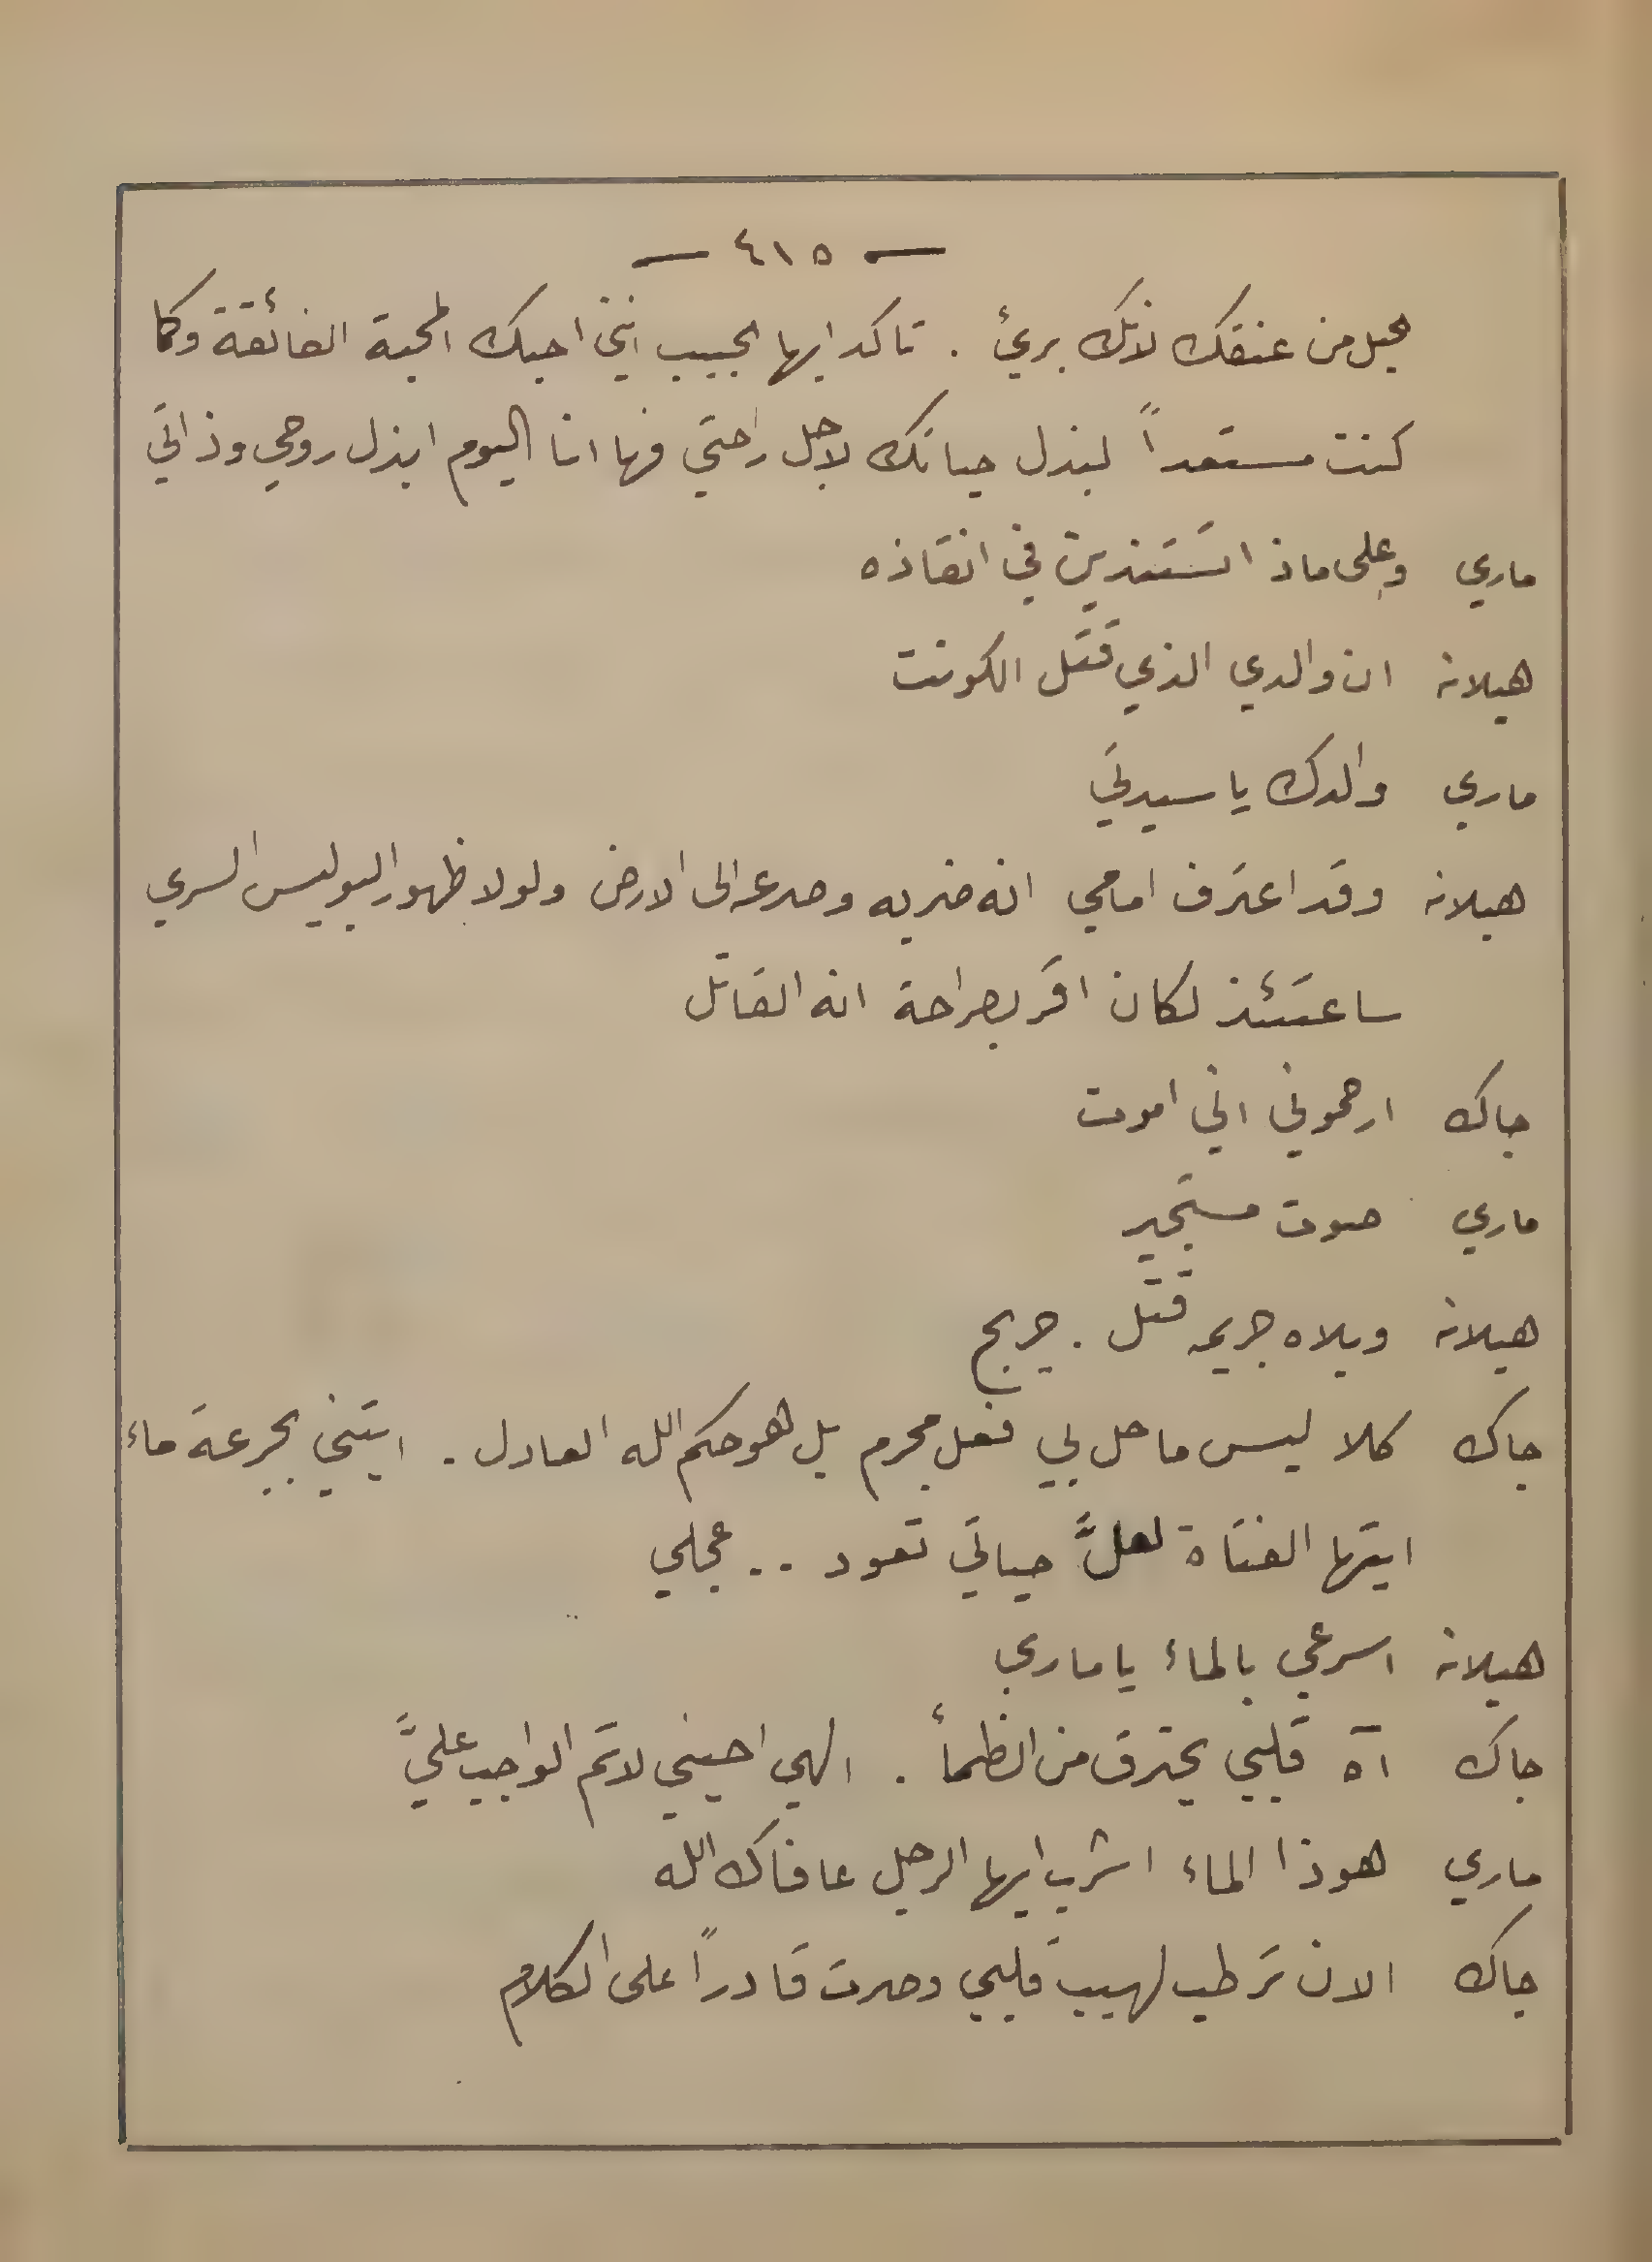 — ٤١٥ —
لحبل من عنقك لانك برئ . تاكد ايها الحبيب انني احبك المحبة الفائقة وكما
كنت مستعداً لبذل حياتك لاجل راحتي فها انا اليوم ابذل روحي وذاتي
ماري وعلى ماذا تستندين في انقاذه
هيلانة ان والدي الذي قتل الكونت
ماري والدك يا سيدتي
هيلانة وقد اعترف امامي انه ضربه وصرعه الى الارض ولولا ظهور البوليس السري
ساعتئذ لكان اقر بصراحة انه القاتل
جاك ارحموني اني اموت
ماري صوت مستجير
هيلانة ويلاه جريمه قتل . جريح
جاك كلا ليس ما حل بي فعل مجرم بل هو حكم الله العادل . ايتني بجرعة ماء
ايتها الفتاة لعلَّ حياتي تعود .. عجلي
هيلانة اسرعي بالماء يا ماري
جاك آه قلبي يحترق من الظمأ . الهي احيني لاتم الواجب عليَّ
ماري هوذا الماء اشرب ايها الرجل عافاك الله
جاك الان ترطب لهيب قلبي وصرت قادراً على الكلام